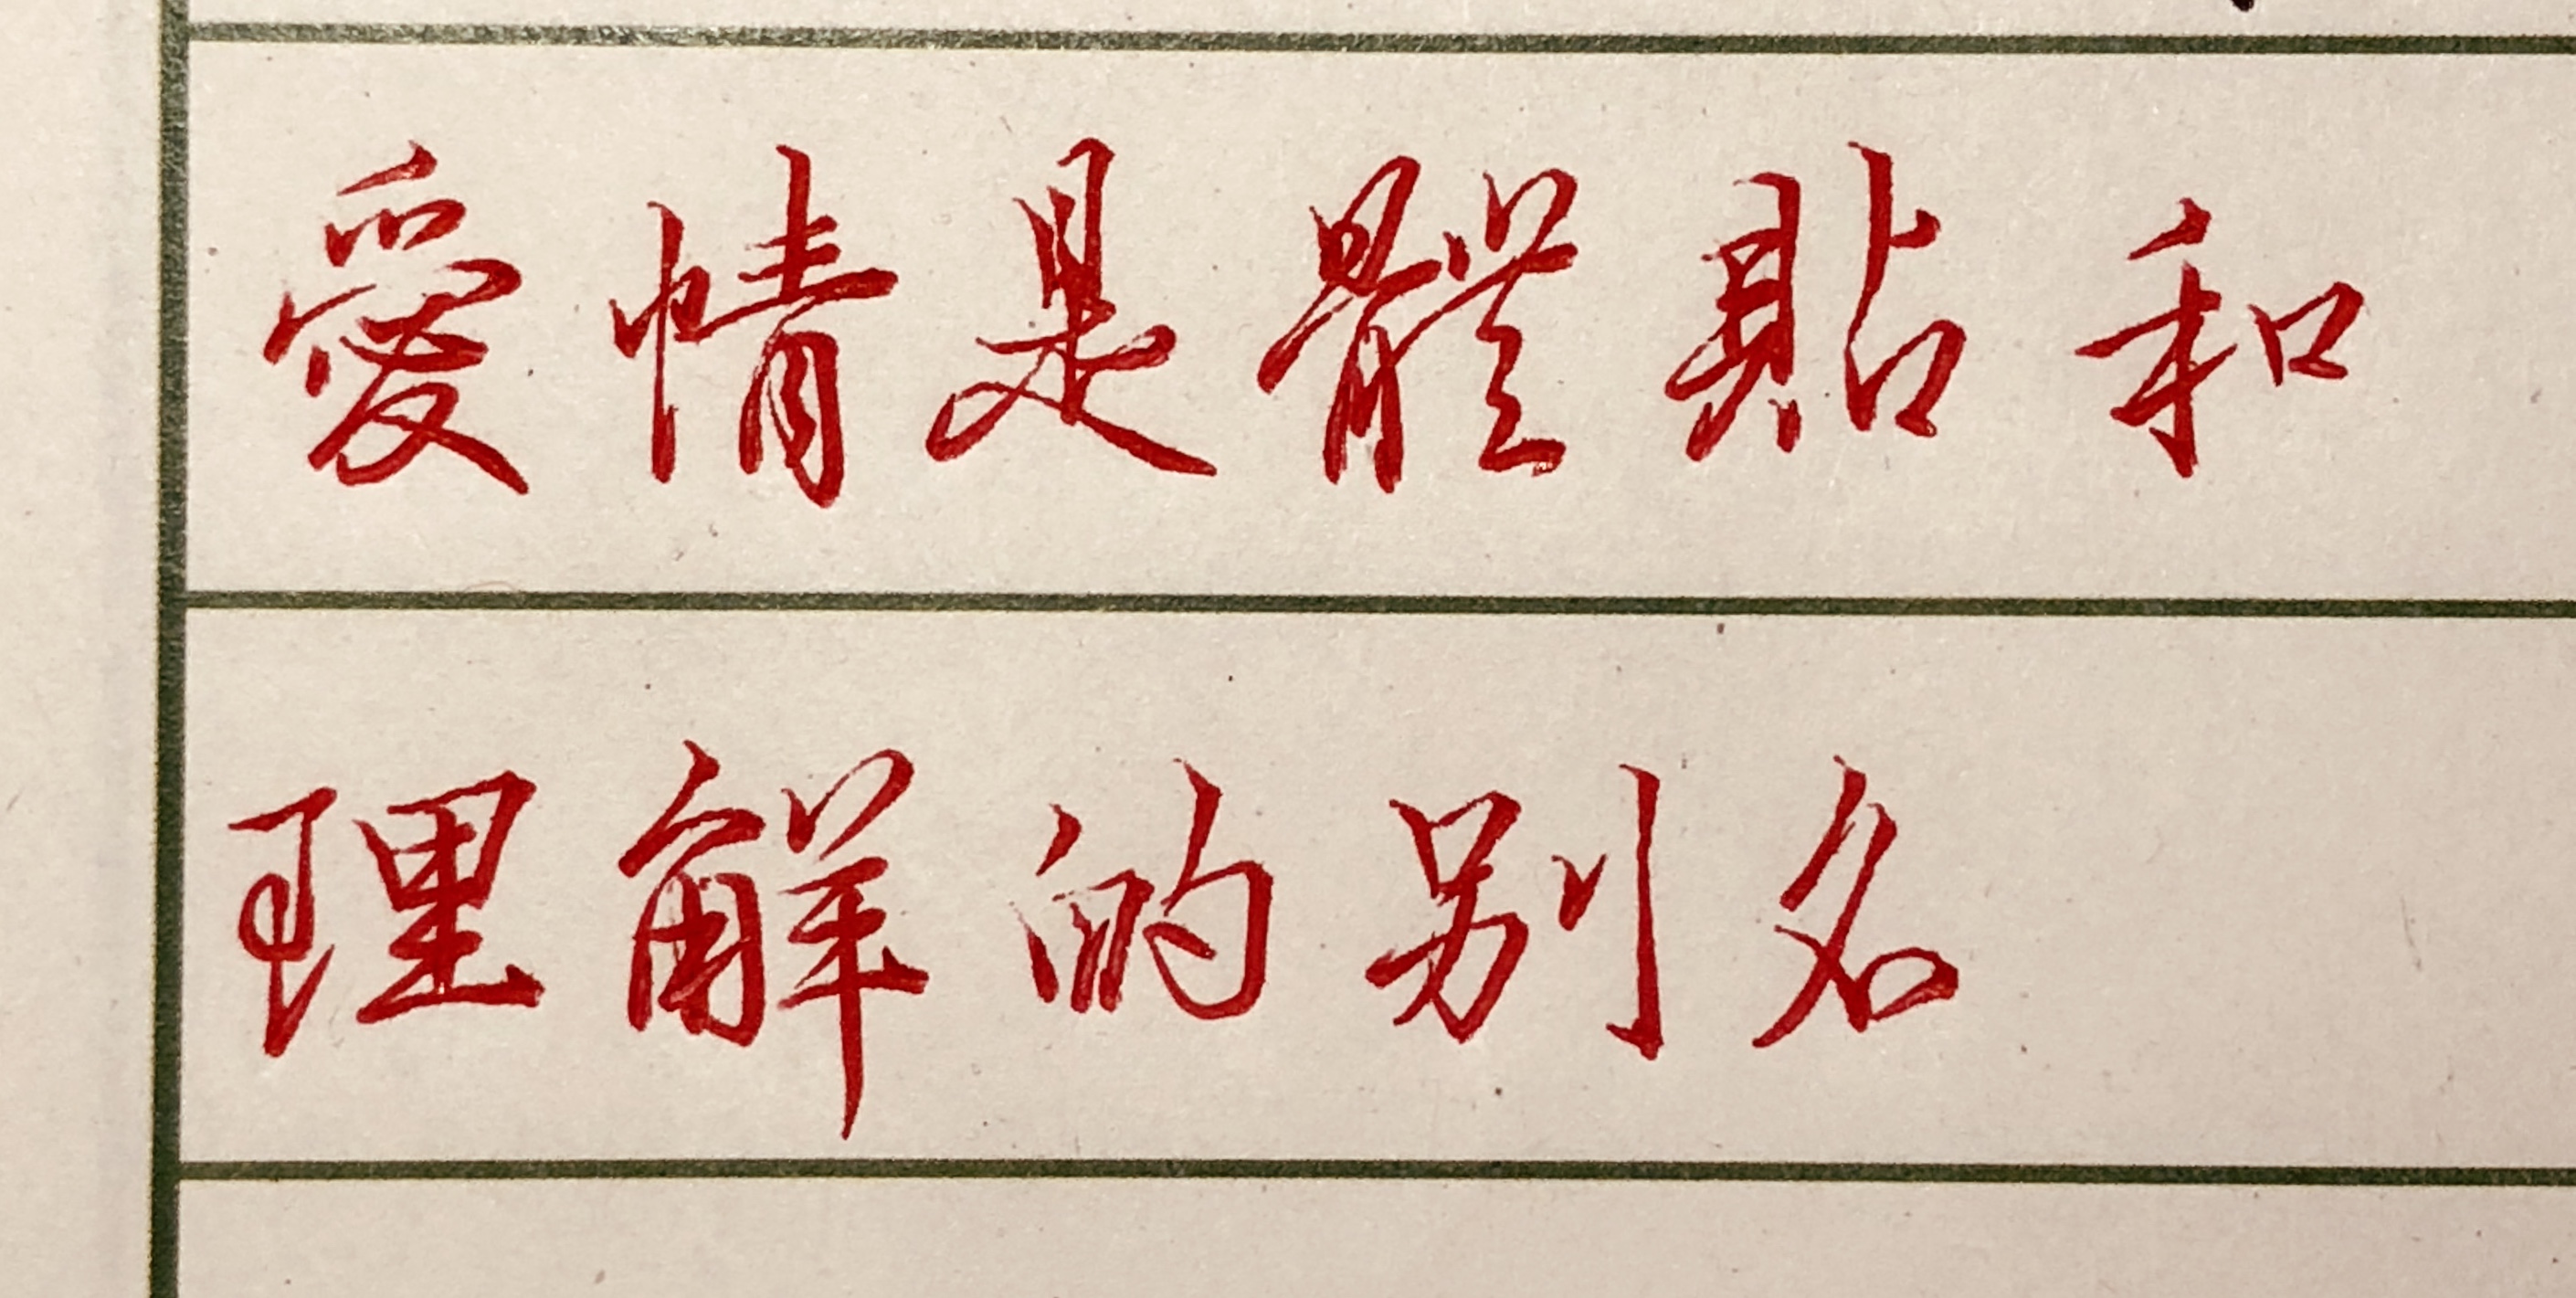 愛情是體貼和
理解的别名